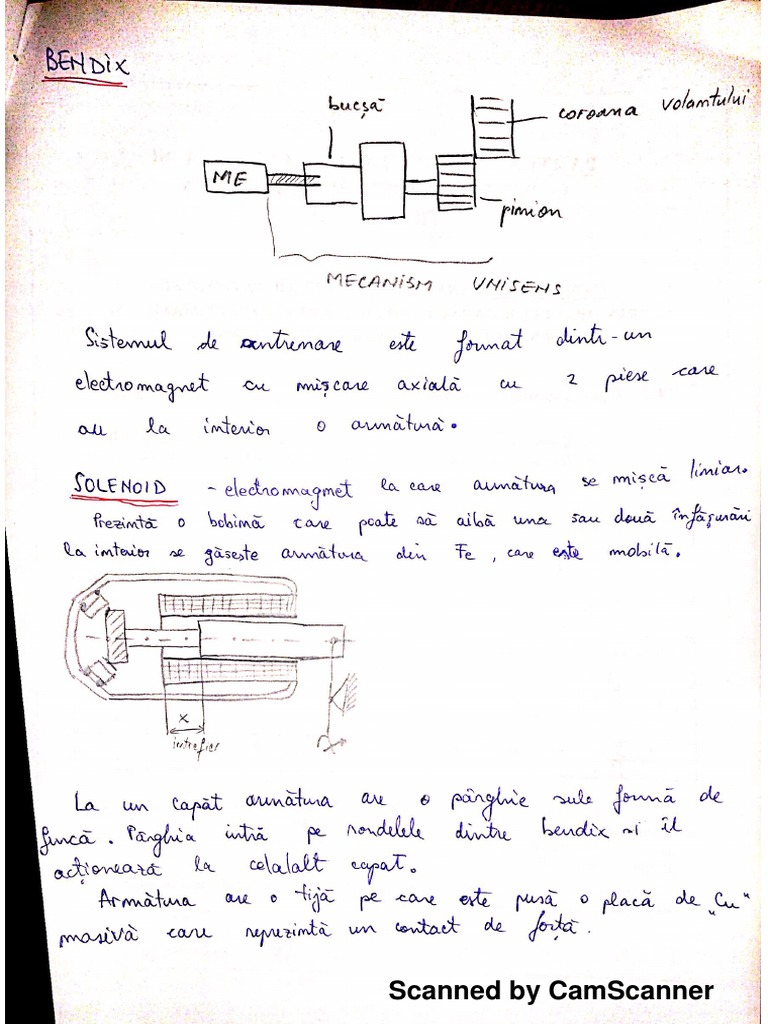 BENDIX
bucșă
coroana volantului
ME
pinion
MECANISM UNISENS
Sistemul de antrenare este format dintr-un
electromagnet cu mișcare axială cu 2 piese care
au la interior o armătură.
SOLENOID - electromagnet la care armătura se mișcă liniar.
Prezintă o bobină care poate să aibă una sau două înfășurări
la interior se găsește armătura din Fe, care este mobilă.
x
întrefier
La un capăt armătura are o pârghie sub formă de
furcă. Pârghia intră pe rondelele dintre bendix si îl
acționează la celalalt capat.
Armătura are o tijă pe care este pusă o placă de "Cu"
masivă care reprezintă un contact de forță.
Scanned by CamScanner